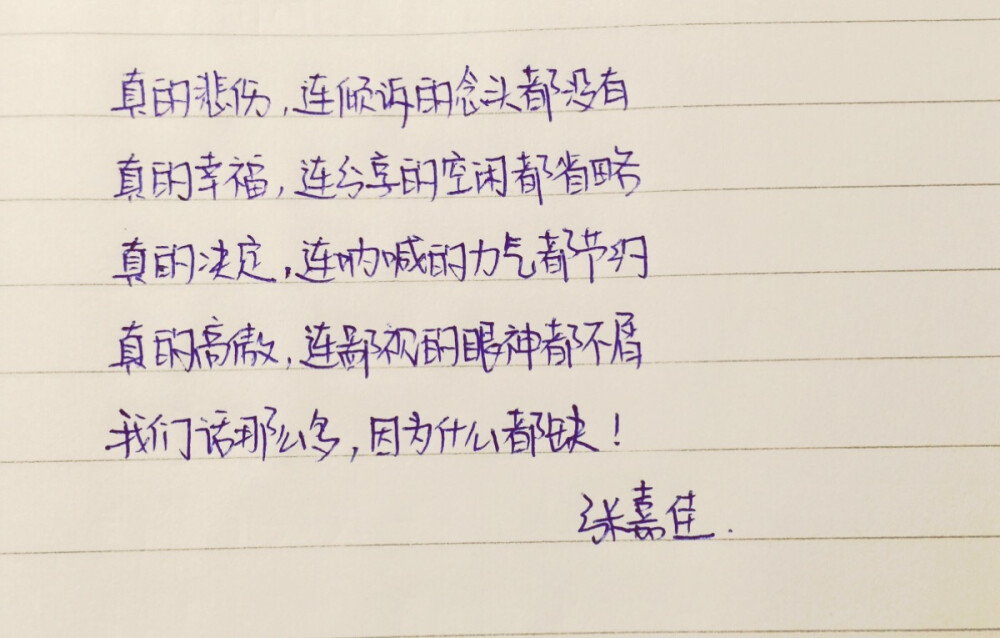 真的悲伤，连倾诉的念头都没有
真的幸福，连分享的空闲都省略
真的决定，连呐喊的力气都节约
真的高傲，连鄙视的眼神都不屑
我们话那么多，因为什么都缺！
张嘉佳.